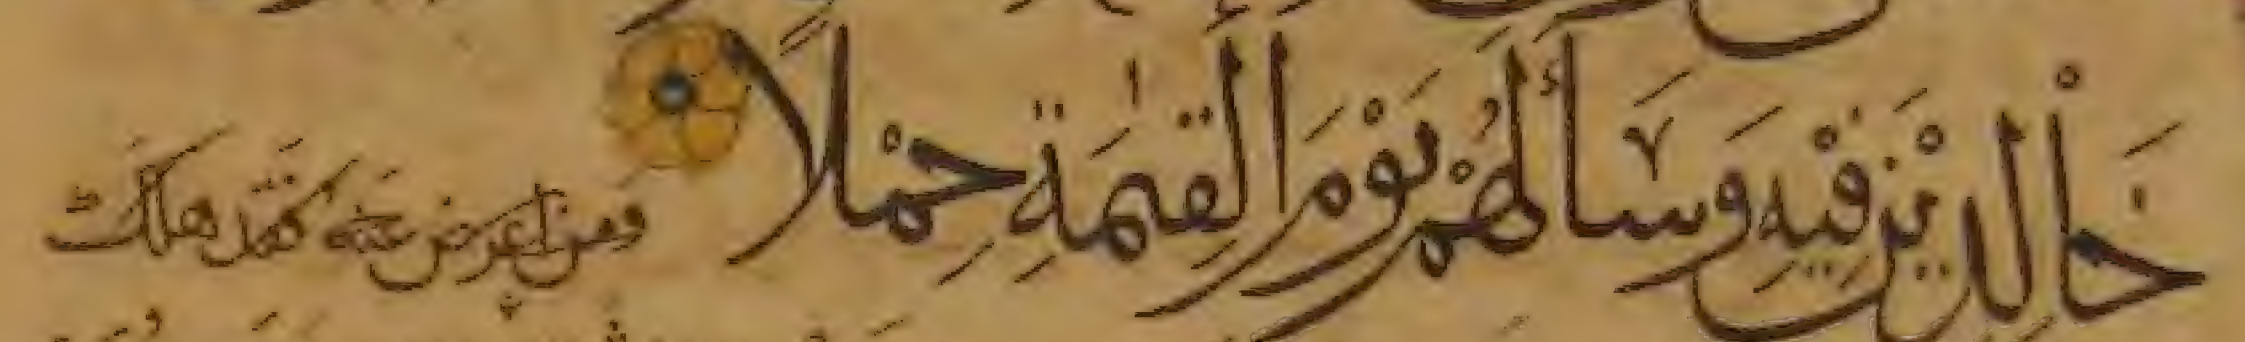 خَالِدِينَ فِيهِ وَسَاءَ لَهُمْ يَوْمَ الْقِيٰمَةِ حِمْلًا ومن اعرض عنه فقد هلك